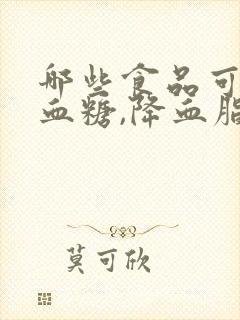 哪些食品可
血糖,降血脂
莫可欣